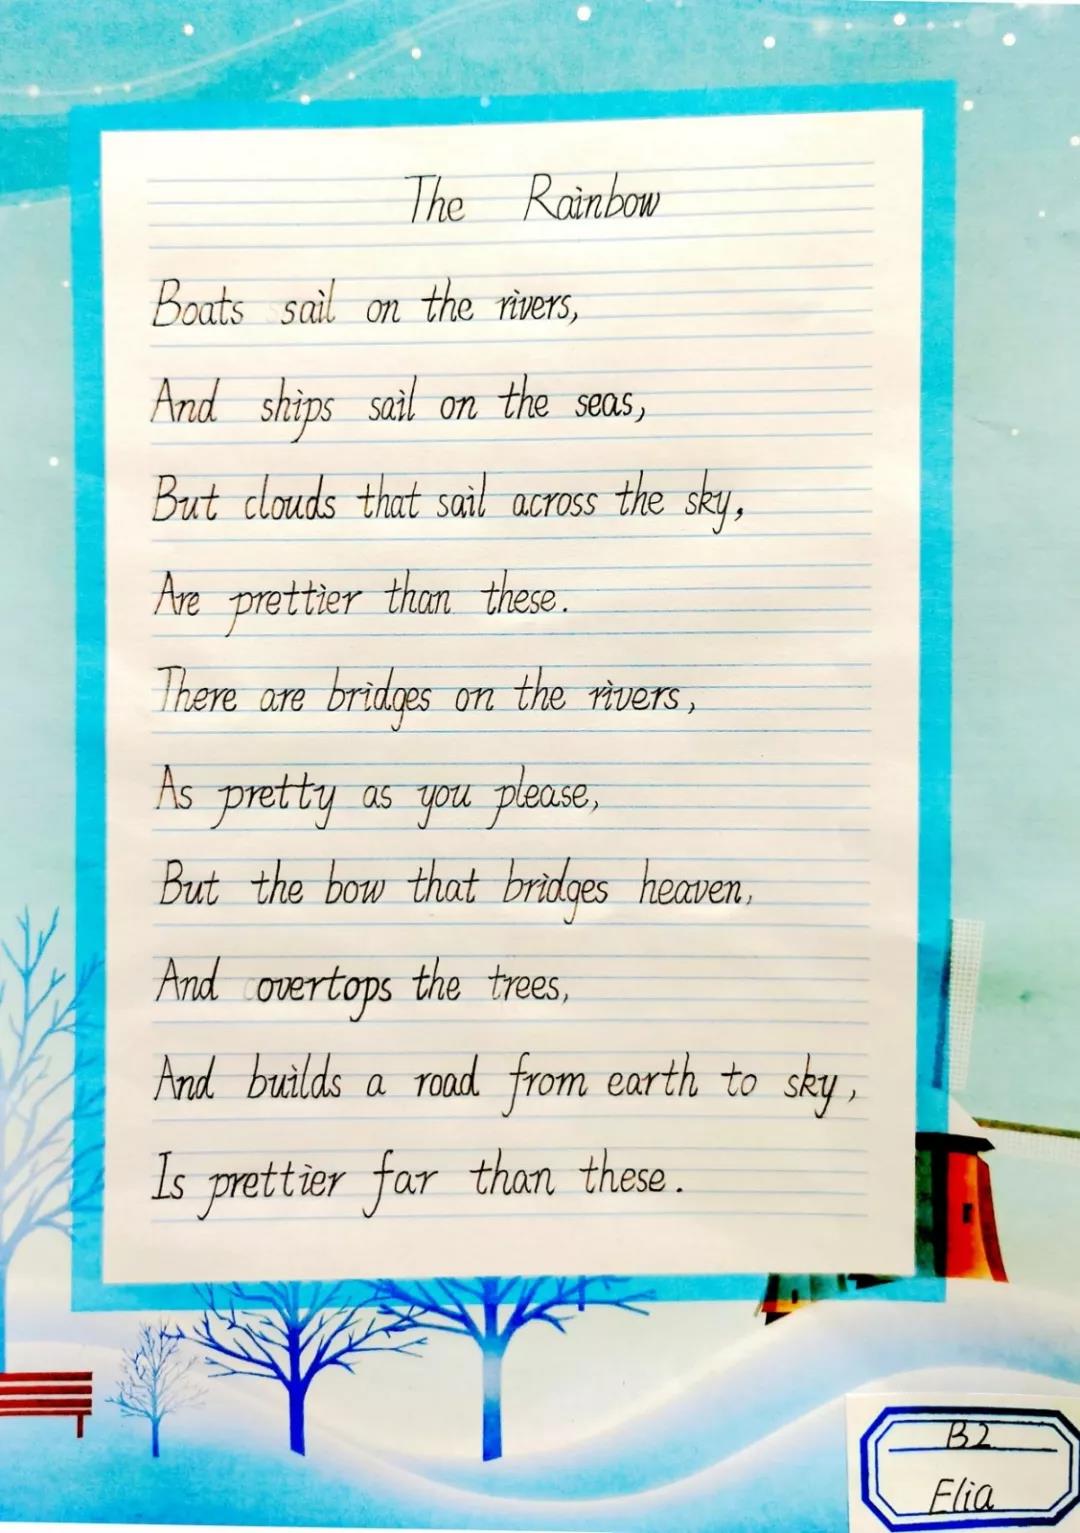 The Rainbow
Boats sail on the rivers,
And ships sail on the seas,
But clouds that sail across the sky,
Are prettier than these.
There are bridges on the rivers,
As pretty as you please,
But the bow that bridges heaven,
And overtops the trees,
And builds a road from earth to sky,
Is prettier far than these.
B2
Elia